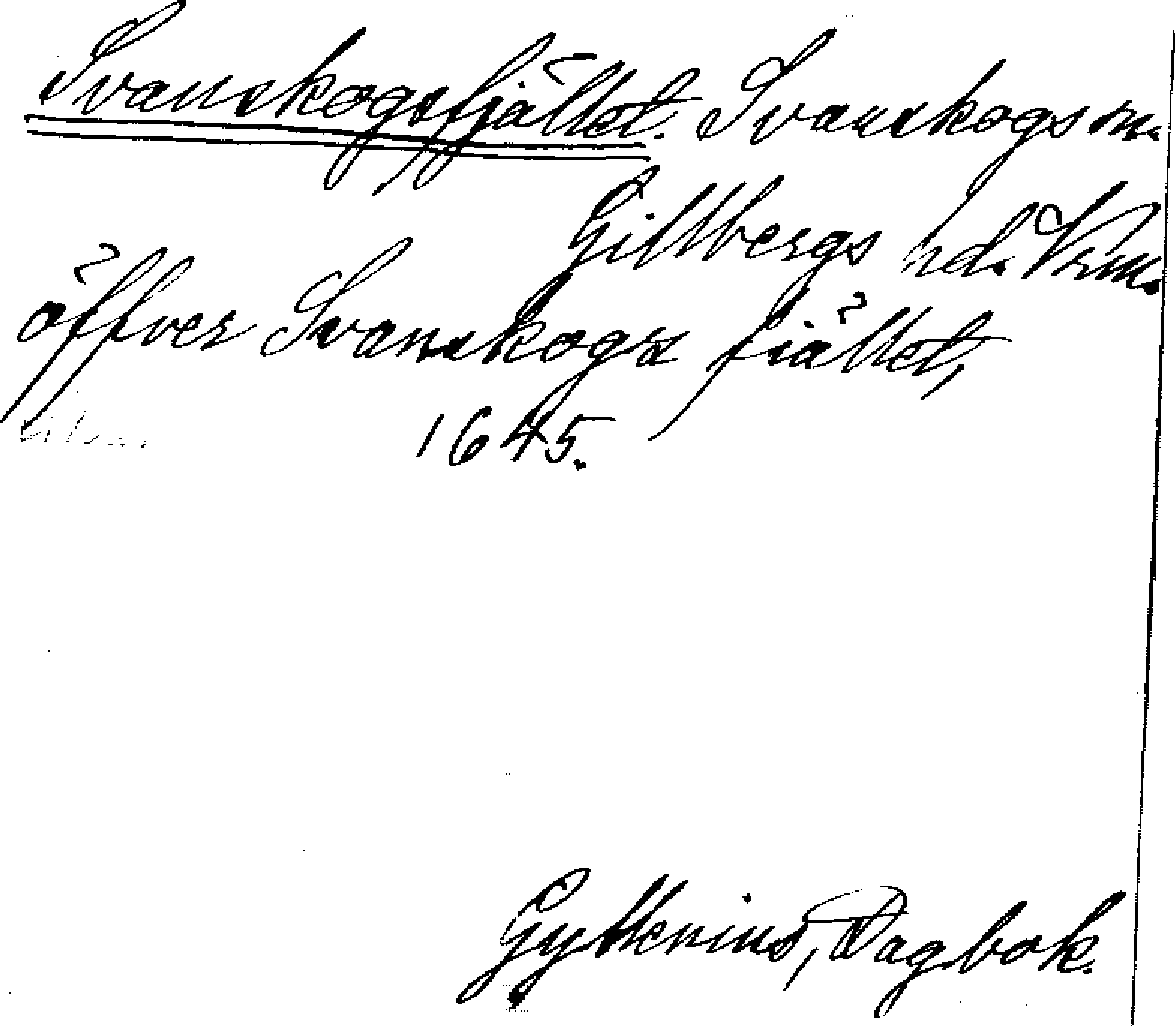 Svanskogsfjället. Svanskogs sn.
Gillbergs hd. Vrm.
öffver Svanskogs fiället,
1645.
Gyllenius, Dagbok.